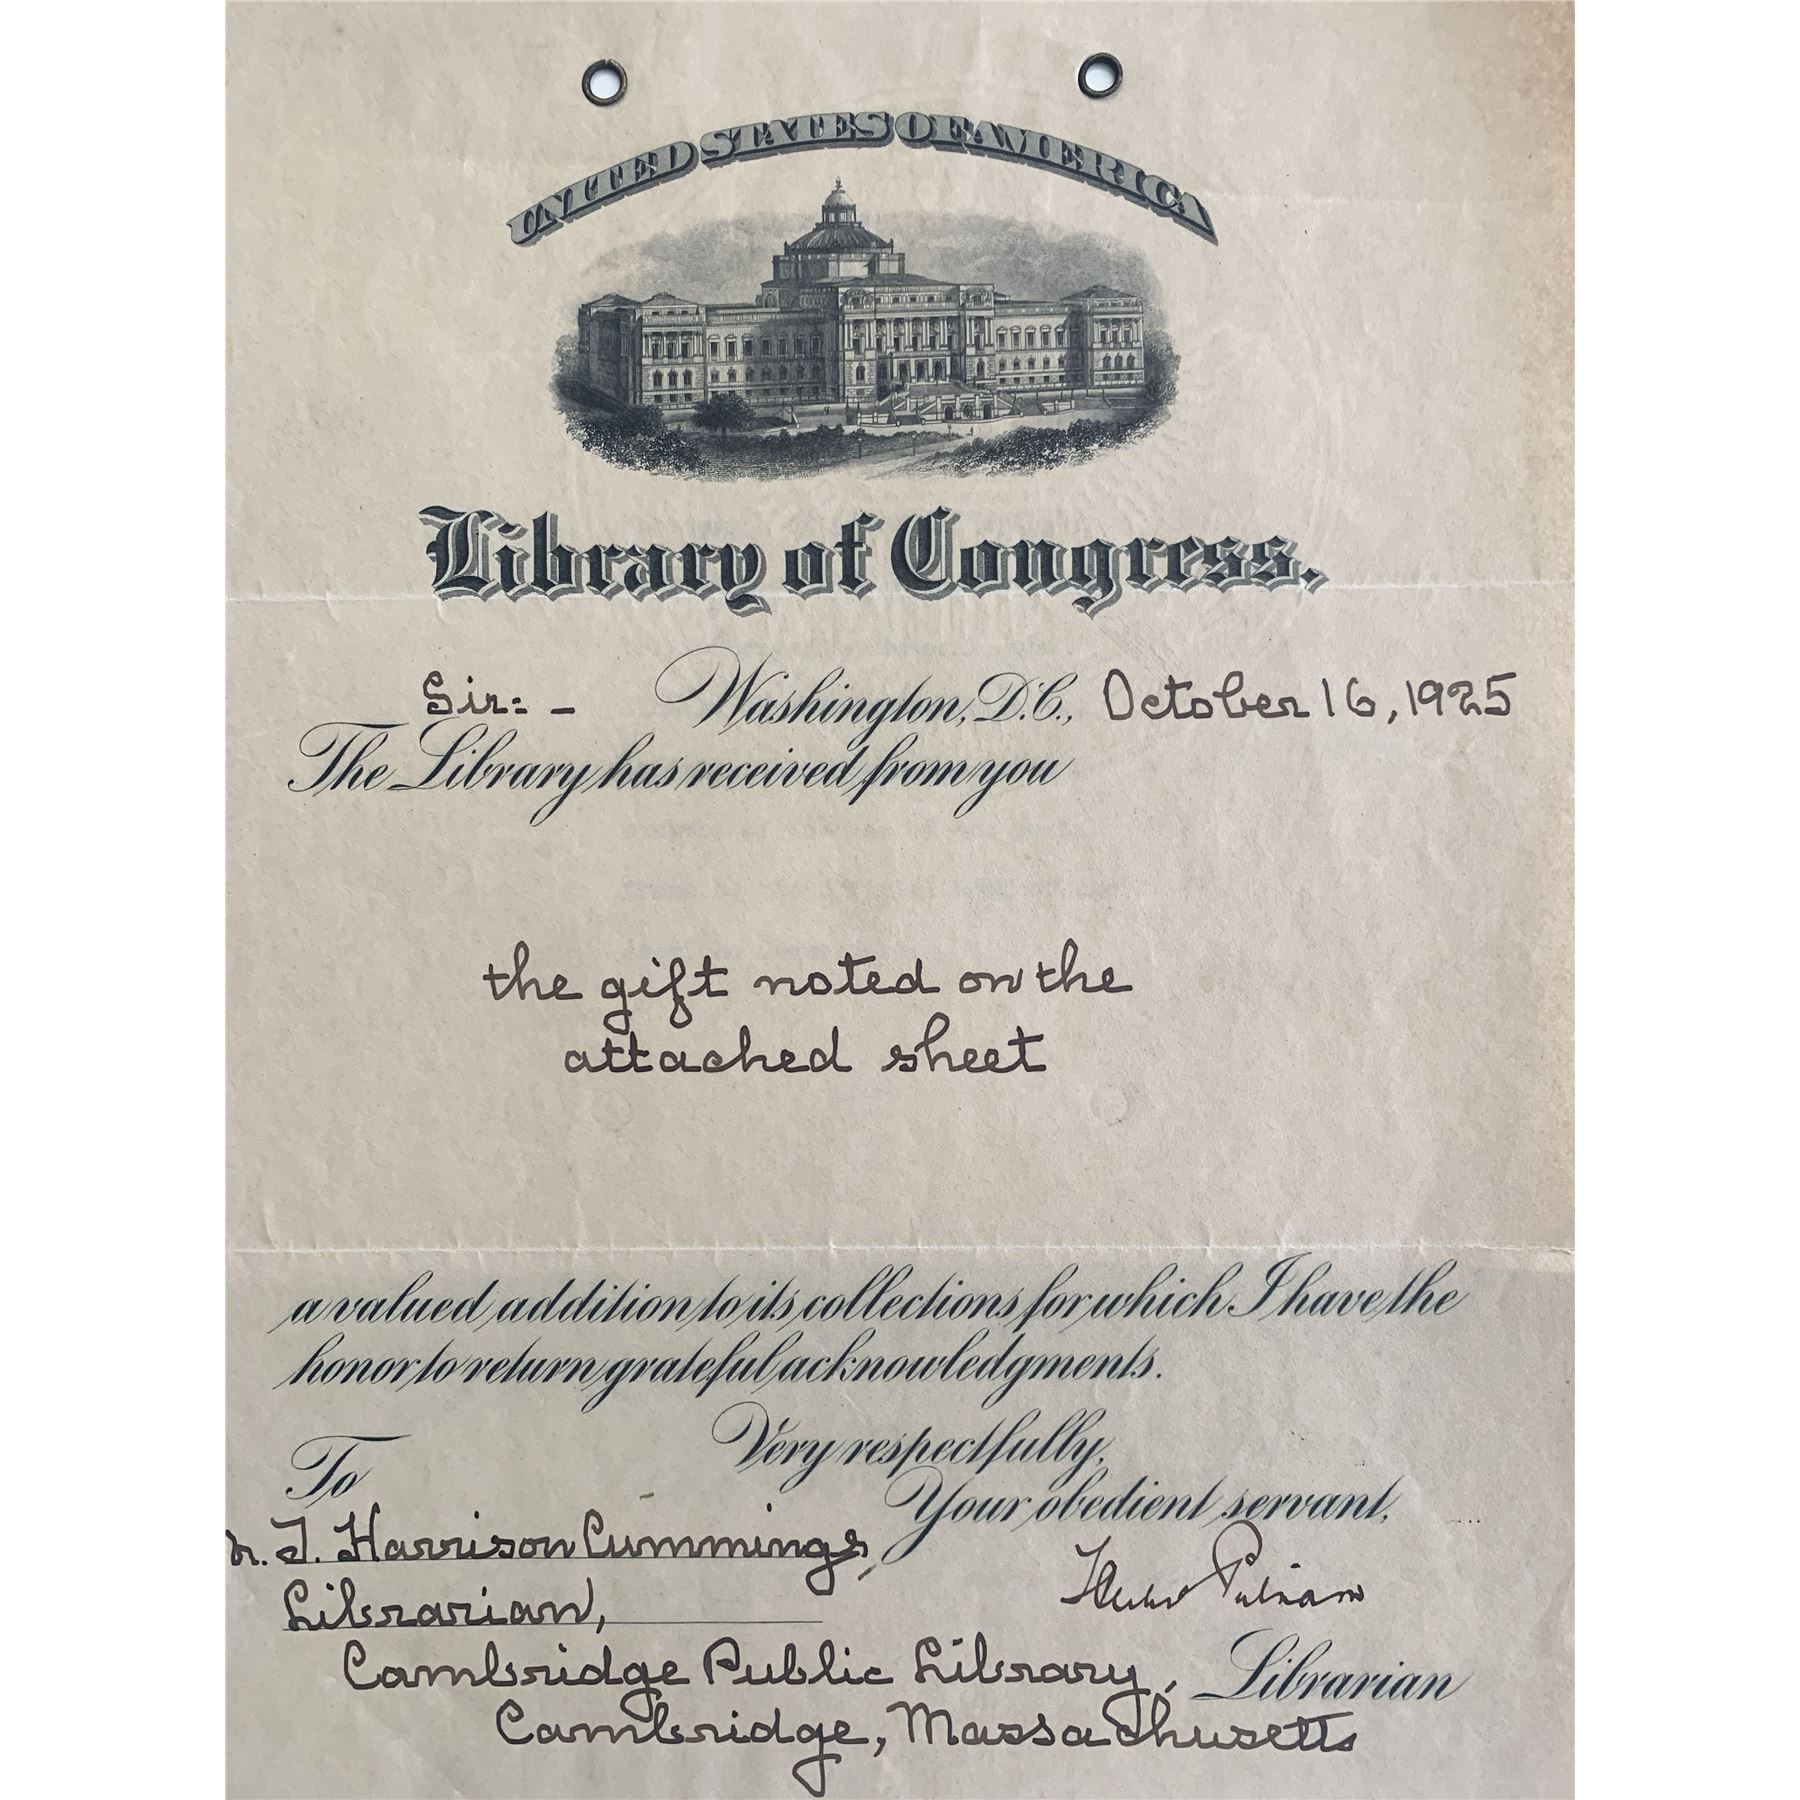 UNITED STATES OF AMERICA
Library of Congress.
Sir:- Washington, D.C., October 16, 1925
The Library has received from you
the gift noted on the
attached sheet
a valued addition to its collections for which I have the
honor to return grateful acknowledgments.
Very respectfully,
To
Your obedient servant,
r. T. Harrison Cummings,
Herbert Putnam
Librarian,
Cambridge Public Library,
Librarian
Cambridge, Massachusetts